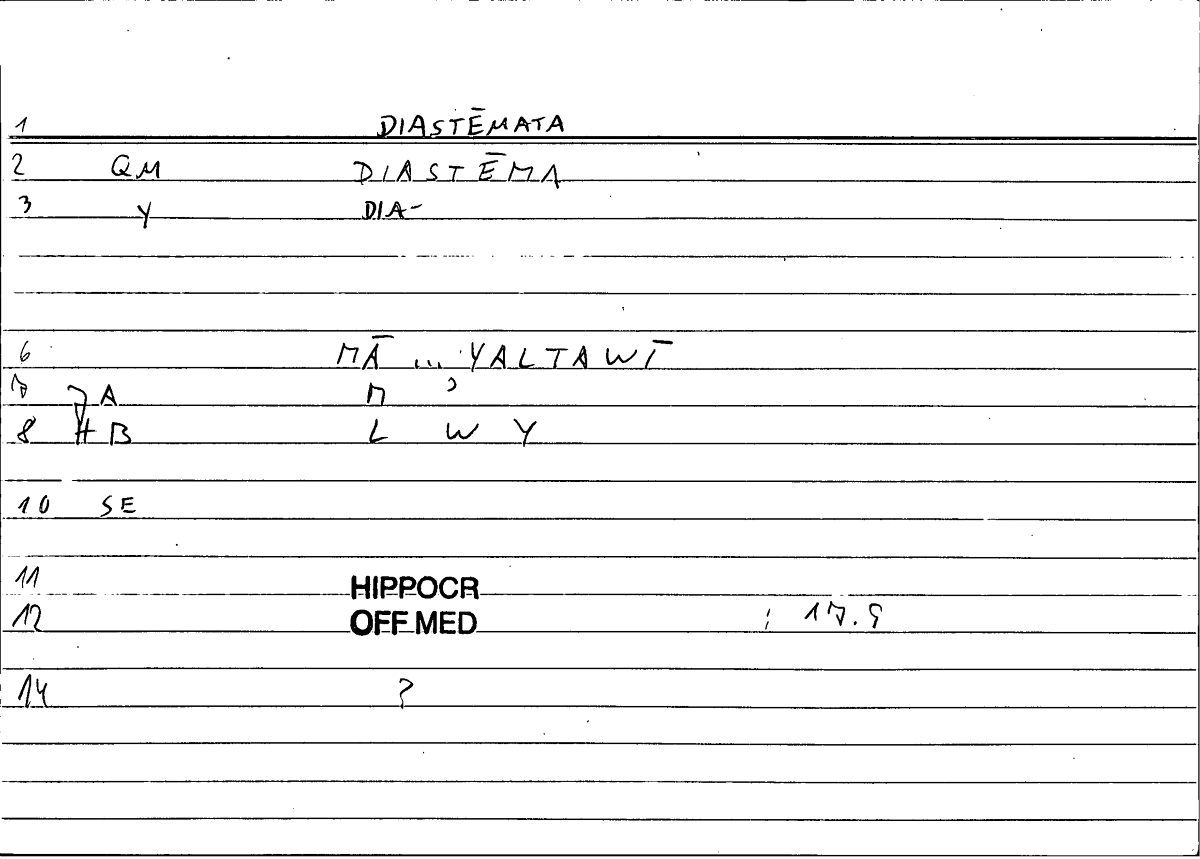 1 DIASTĒMATA
2 QM DIASTĒMA
3 Y DIA-
6 MĀ ... YALTAWĪ
7 A M ʾ
8 # B L W Y
10 SE
11 HIPPOCR
12 OFF MED : 17.9
14 ?